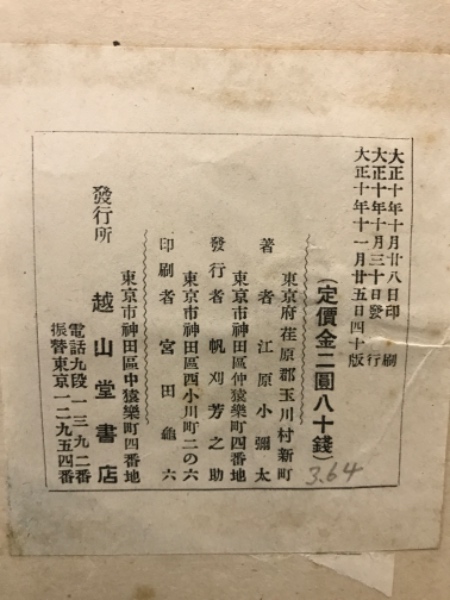 大正十年十月廿八日印刷
大正十年十月三十日發行
大正十年十一月廿五日四十版
(定價金二圓八十錢)
3.64
東京府荏原郡玉川村新町
著者 江原小彌太
東京市神田區仲猿樂町四番地
發行者 帆刈芳之助
東京市神田區西小川町二の六
印刷者 宮田龜六
東京市神田區中猿樂町四番地
發行所 越山堂書店
電話九段一三九二番
振替東京一二九五四番